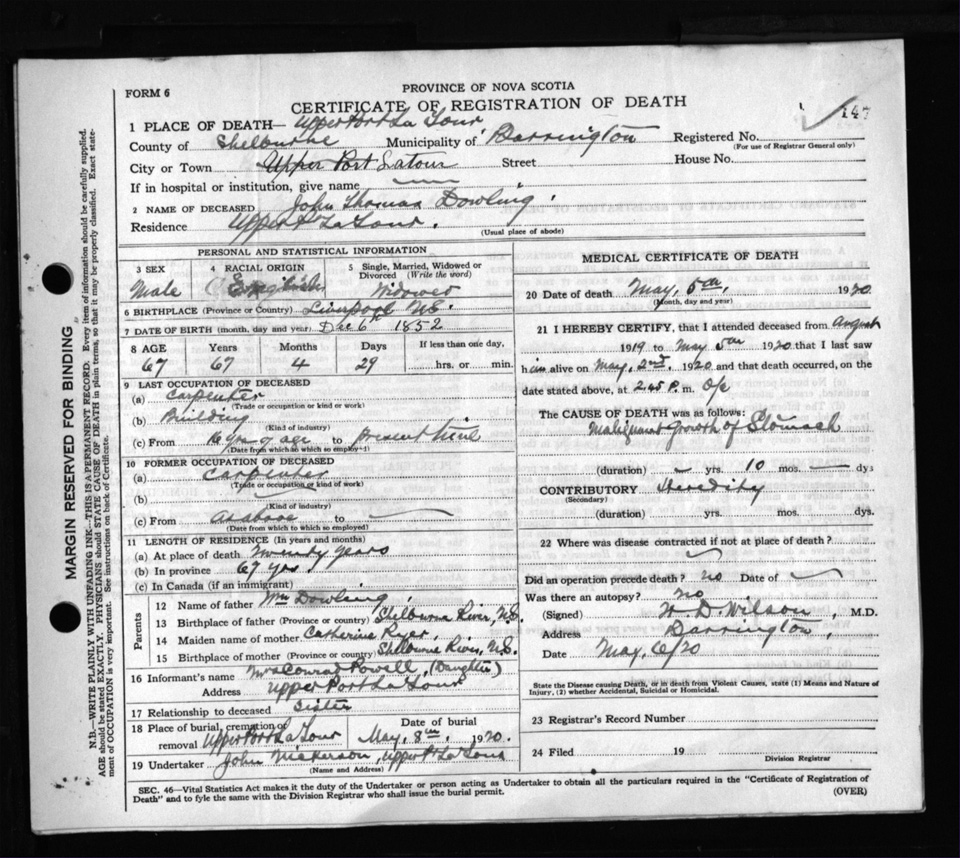 FORM 6
PROVINCE OF NOVA SCOTIA
CERTIFICATE OF REGISTRATION OF DEATH
147
1 PLACE OF DEATH— Upper Port La Tour
County of Shelburne Municipality of Barrington Registered No.
(For use of Registrar General only)
City or Town Upper Port Latour Street House No.
If in hospital or institution, give name
2 NAME OF DECEASED John Thomas Dowling
Residence Upper Pt La Tour.
(Usual place of abode)
PERSONAL AND STATISTICAL INFORMATION
3 SEX
Male
4 RACIAL ORIGIN
English
5 Single, Married, Widowed or Divorced (Write the word)
Widowed
6 BIRTHPLACE (Province or Country) Liverpool N.S.
7 DATE OF BIRTH (month, day and year) Dec 6th 1852
8 AGE Years Months Days If less than one day,
67 67 4 29 hrs. or min.
9 LAST OCCUPATION OF DECEASED
(a) Carpenter
(Trade or occupation or kind of work)
(b) Building
(Kind of industry)
(c) From 16 yrs of age to Present time
(Date from which to which so employed)
10 FORMER OCCUPATION OF DECEASED
(a) Carpenter
(Trade or occupation or kind of work)
(b)
(Kind of industry)
(c) From as above to
(Date from which to which so employed)
11 LENGTH OF RESIDENCE (In years and months)
(a) At place of death Twenty years
(b) In province 67 yrs.
(c) In Canada (if an immigrant)
Parents
12 Name of father Wm Dowling
13 Birthplace of father (Province or country) Shelburne River, N.S.
14 Maiden name of mother Catherine Ryer
15 Birthplace of mother (Province or country) Shelburne River, N.S.
16 Informant's name Mrs Conrad Powell, (Daughter)
Address Upper Port La Tour
17 Relationship to deceased Sister
18 Place of burial, cremation or removal Upper Port La Tour
Date of burial May, 8th, 1920.
19 Undertaker John Nickerson, Upper Pt La Tour
(Name and Address)
MEDICAL CERTIFICATE OF DEATH
20 Date of death May, 5th, 1920
(Month, day and year)
21 I HEREBY CERTIFY, that I attended deceased from August
1919 to May 5th 1920 that I last saw
him alive on May, 2nd. 1920 and that death occurred, on the
date stated above, at 2.45 P. m. o/c
The CAUSE OF DEATH was as follows:
Malignant Growth of Stomach
(duration) yrs. 10 mos. dys
CONTRIBUTORY Heredity
(Secondary)
(duration) yrs. mos. dys.
22 Where was disease contracted if not at place of death?
Did an operation precede death? no Date of
Was there an autopsy? no
(Signed) W. D. Wilson, M.D.
Address Barrington,
Date May, 6/20
State the Disease causing Death, or in death from Violent Causes, state (1) Means and Nature of
Injury, (2) whether Accidental, Suicidal or Homicidal.
23 Registrar's Record Number
24 Filed 19
Division Registrar
SEC. 46—Vital Statistics Act makes it the duty of the Undertaker or person acting as Undertaker to obtain all the particulars required in the "Certificate of Registration of
Death" and to fyle the same with the Division Registrar who shall issue the burial permit.
(OVER)
MARGIN RESERVED FOR BINDING
N.B.—WRITE PLAINLY WITH UNFADING INK—THIS IS A PERMANENT RECORD. Every item of information should be carefully supplied.
AGE should be stated EXACTLY. PHYSICIANS should STATE CAUSE OF DEATH in plain terms, so that it may be properly classified. Exact state-
ment of OCCUPATION is very important. See instructions on back of Certificate.